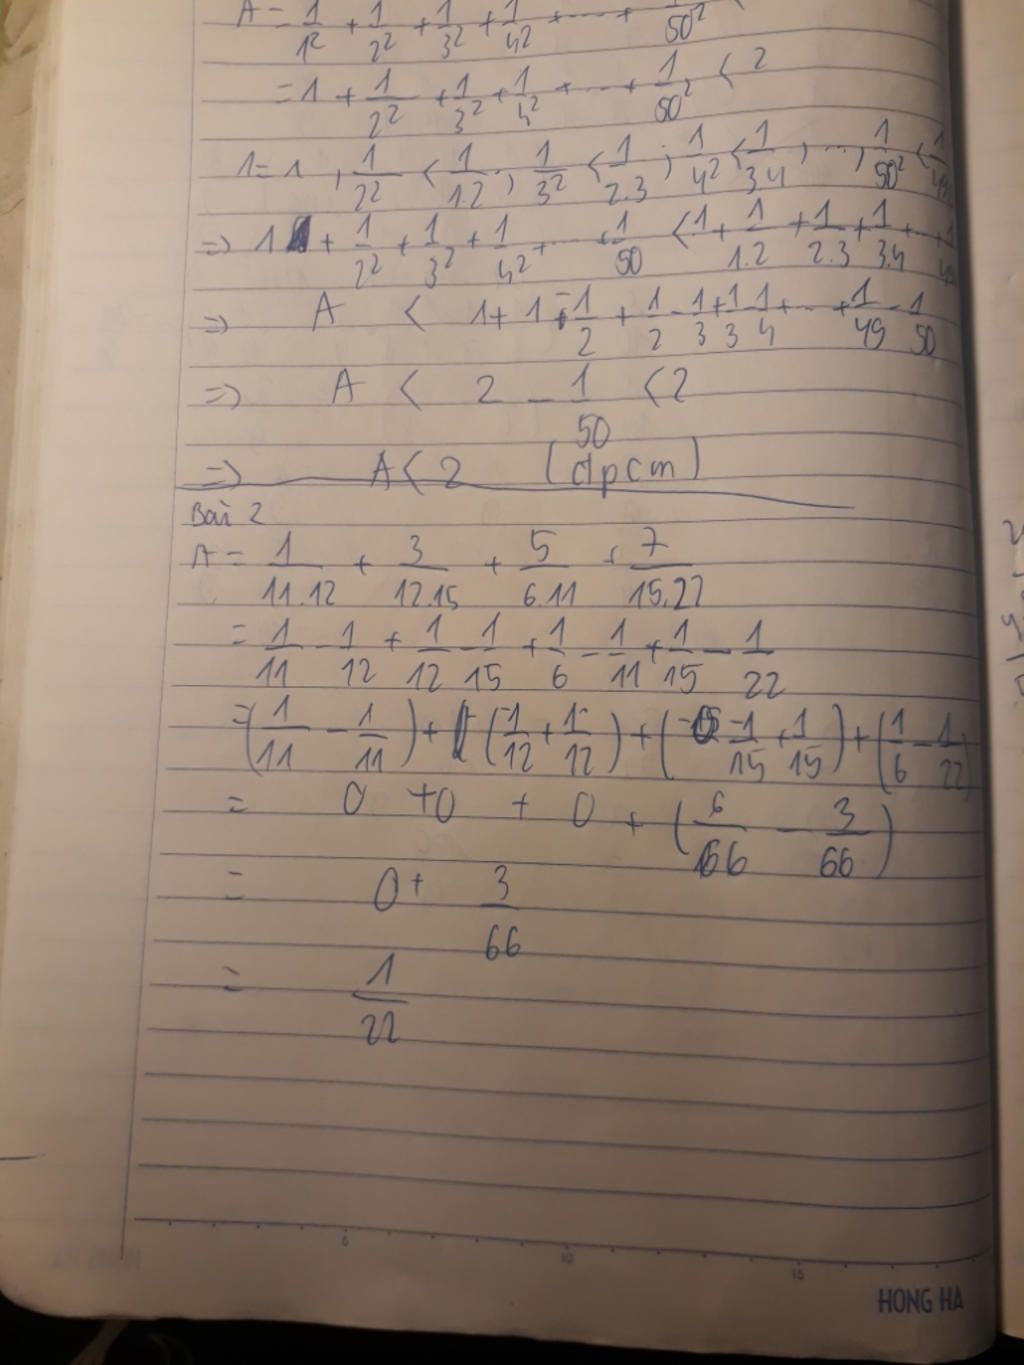 A = 1/1² + 1/2² + 1/3² + 1/4² + ... + 1/50²
= 1 + 1/2² + 1/3² + 1/4² + ... + 1/50² < 2
1 = 1, 1/2² < 1/1.2; 1/3² < 1/2.3; 1/4² < 1/3.4, ..., 1/50² < 1/49
=> 1 + 1/2² + 1/3² + 1/4² + ... + 1/50 < 1 + 1/1.2 + 1/2.3 + 1/3.4 + ... +
=> A < 1 + 1 - 1/2 + 1/2 - 1/3 + 1/3 - 1/4 + ... + 1/49 - 1/50
=> A < 2 - 1/50 < 2
=> A < 2 (đpcm)
Bài 2
A = 1/11.12 + 3/12.15 + 5/6.11 + 7/15.22
= 1/11 - 1/12 + 1/12 - 1/15 + 1/6 - 1/11 + 1/15 - 1/22
= (1/11 - 1/11) + (-1/12 + 1/12) + (-1/15 + 1/15) + (1/6 - 1/22)
= 0 + 0 + 0 + (6/66 - 3/66)
= 0 + 3/66
= 1/22
5 10 15
HONG HA